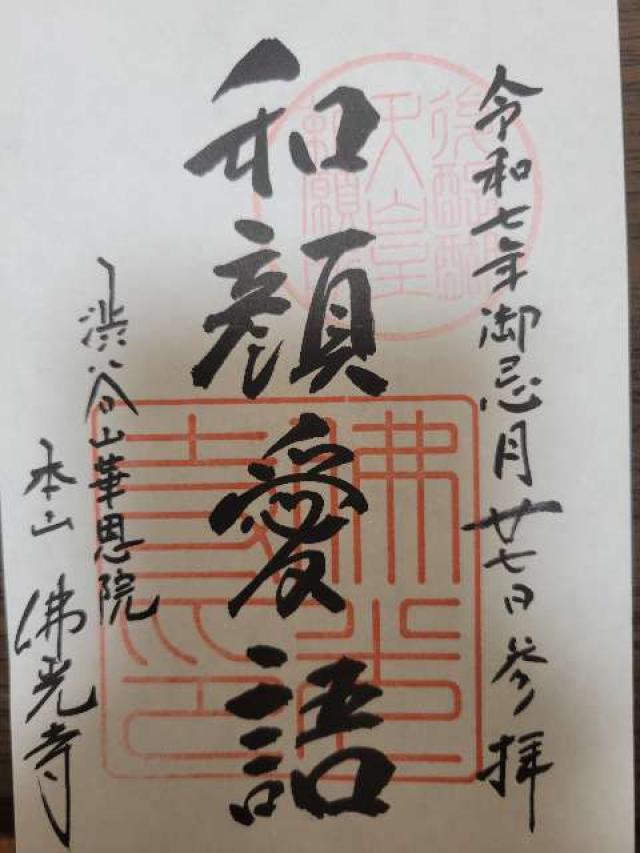 令和七年御忌月廿七日参拝
後醍醐
天皇
勅願所
和顔愛語
佛光寺印
渋谷山華恩院
本山佛光寺